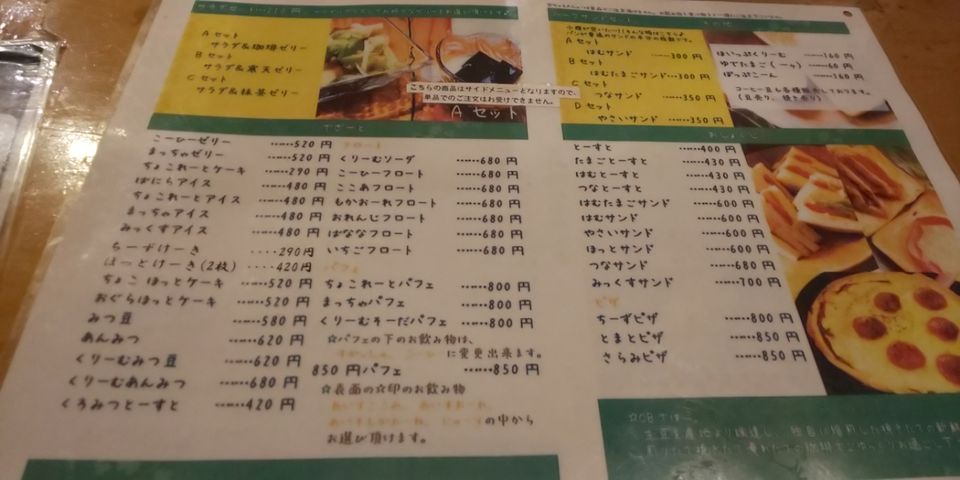 Aセット
サラダ&珈琲ゼリー
Bセット
サラダ&寒天ゼリー
Cセット
サラダ&抹茶ゼリー
こちらの商品はサイドメニューとなりますので、
単品でのご注文はお受けできません。
Aセット
でざーと
こーひーゼリー ……520円
まっちゃゼリー ……520円
ちょこれーとケーキ ……290円
ばにらアイス ……480円
ちょこれーとアイス ……480円
まっちゃアイス ……480円
みっくすアイス ……480円
ちーずけーき ....290円
ほっとけーき(2枚) ....420円
ちょこほっとケーキ ……520円
おぐらほっとケーキ ……520円
みつ豆 ……580円
あんみつ ……620円
くりーむみつ豆 ……620円
くりーむあんみつ ……680円
くろみつとーすと ……420円
フロート
くりーむソーダ ……680円
こーひーフロート ……680円
ここあフロート ……680円
もかおーれフロート ……680円
おれんじフロート ……680円
ばななフロート ……680円
いちごフロート ……680円
パフェ
ちょこれーとパフェ ……800円
まっちゃパフェ ……800円
くりーむそーだパフェ ……800円
☆パフェの下のお飲み物は、
に変更出来ます。
850円パフェ ……850円
☆表面の☆印のお飲み物
の中から
お選び頂けます。
ハーフサンドセット
Aセット
はむサンド ……300円
Bセット
はむたまごサンド ……300円
Cセット
つなサンド ……350円
Dセット
やさいサンド ……350円
その他
ほいっぷくりーむ ……160円
ゆでたまご(一ヶ) ……60円
ぽっぷこーん ……160円
コーヒー豆も各種販売しております。
とーすと ……400円
たまごとーすと ……430円
はむとーすと ……430円
つなとーすと ……430円
はむたまごサンド ……600円
はむサンド ……600円
やさいサンド ……600円
ほっとサンド ……600円
つなサンド ……680円
みっくすサンド ……700円
ピザ
ちーずピザ ……800円
とまとピザ ……850円
さらみピザ ……850円